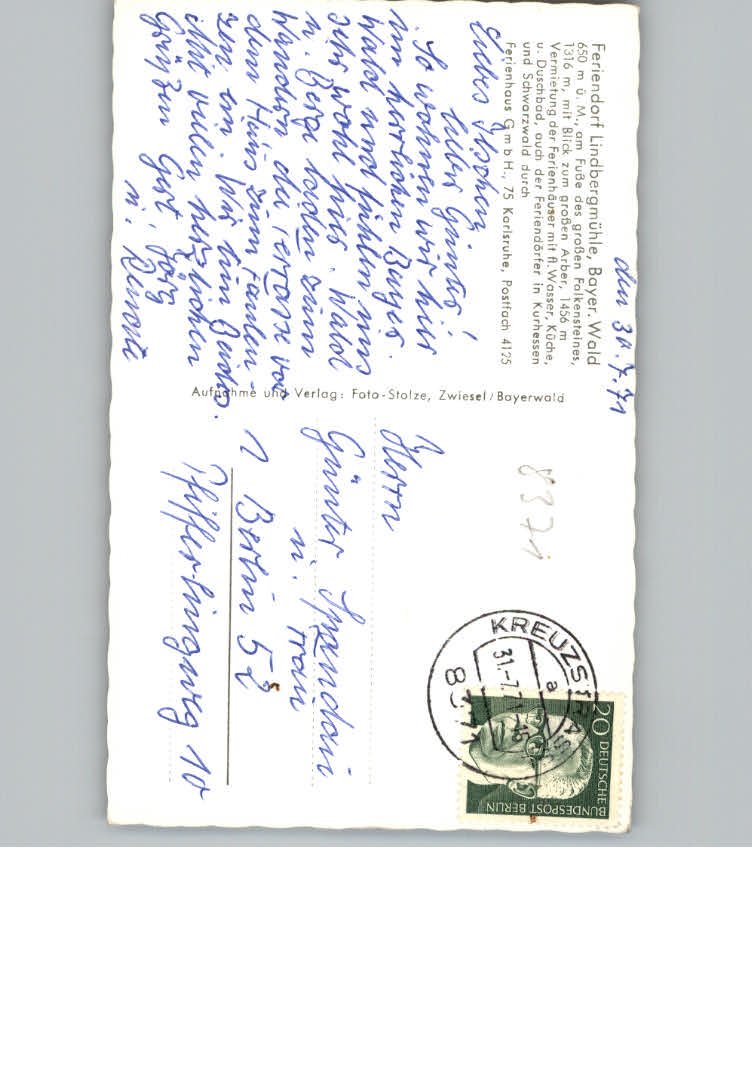 Feriendorf Lindbergmühle, Bayer. Wald
650 m ü. M., am Fuße des großen Falkensteines,
1316 m, mit Blick zum großen Arber, 1456 m
Vermietung der Ferienhäuser mit fl. Wasser, Küche,
u. Duschbad, auch der Feriendörfer in Kurhessen
und Schwarzwald durch
Ferienhaus GmbH., 75 Karlsruhe, Postfach 4125
den 30.7.71
Liebes
lieber Günter!
So wohnen wir hier
im herrlichen Bayer.
Wald und fühlen uns
sehr wohl hier. Wald
u. Berge laden zum
Wandern die Terrasse vor
dem Haus zum Faulen-
zen ein.
Mit vielen herzlichen
Grüßen Gert Jörg
u. Renate
Aufnahme und Verlag: Foto-Stolze, Zwiesel/Bayerwald
Herrn
Günter Spandau
u. Frau
1 Berlin 52
Pfifferlingweg 10
8371
KREUZSTRASSL
31.-7.71
a
8371
20 DEUTSCHE
BUNDESPOST BERLIN